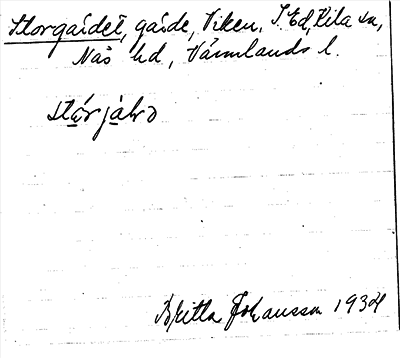 Storgärdet, gärde, Viken, S. Ed, Kila sn,
Näs hd, Värmlands l.
stárjàḷɒ
Britta Johansson 1934